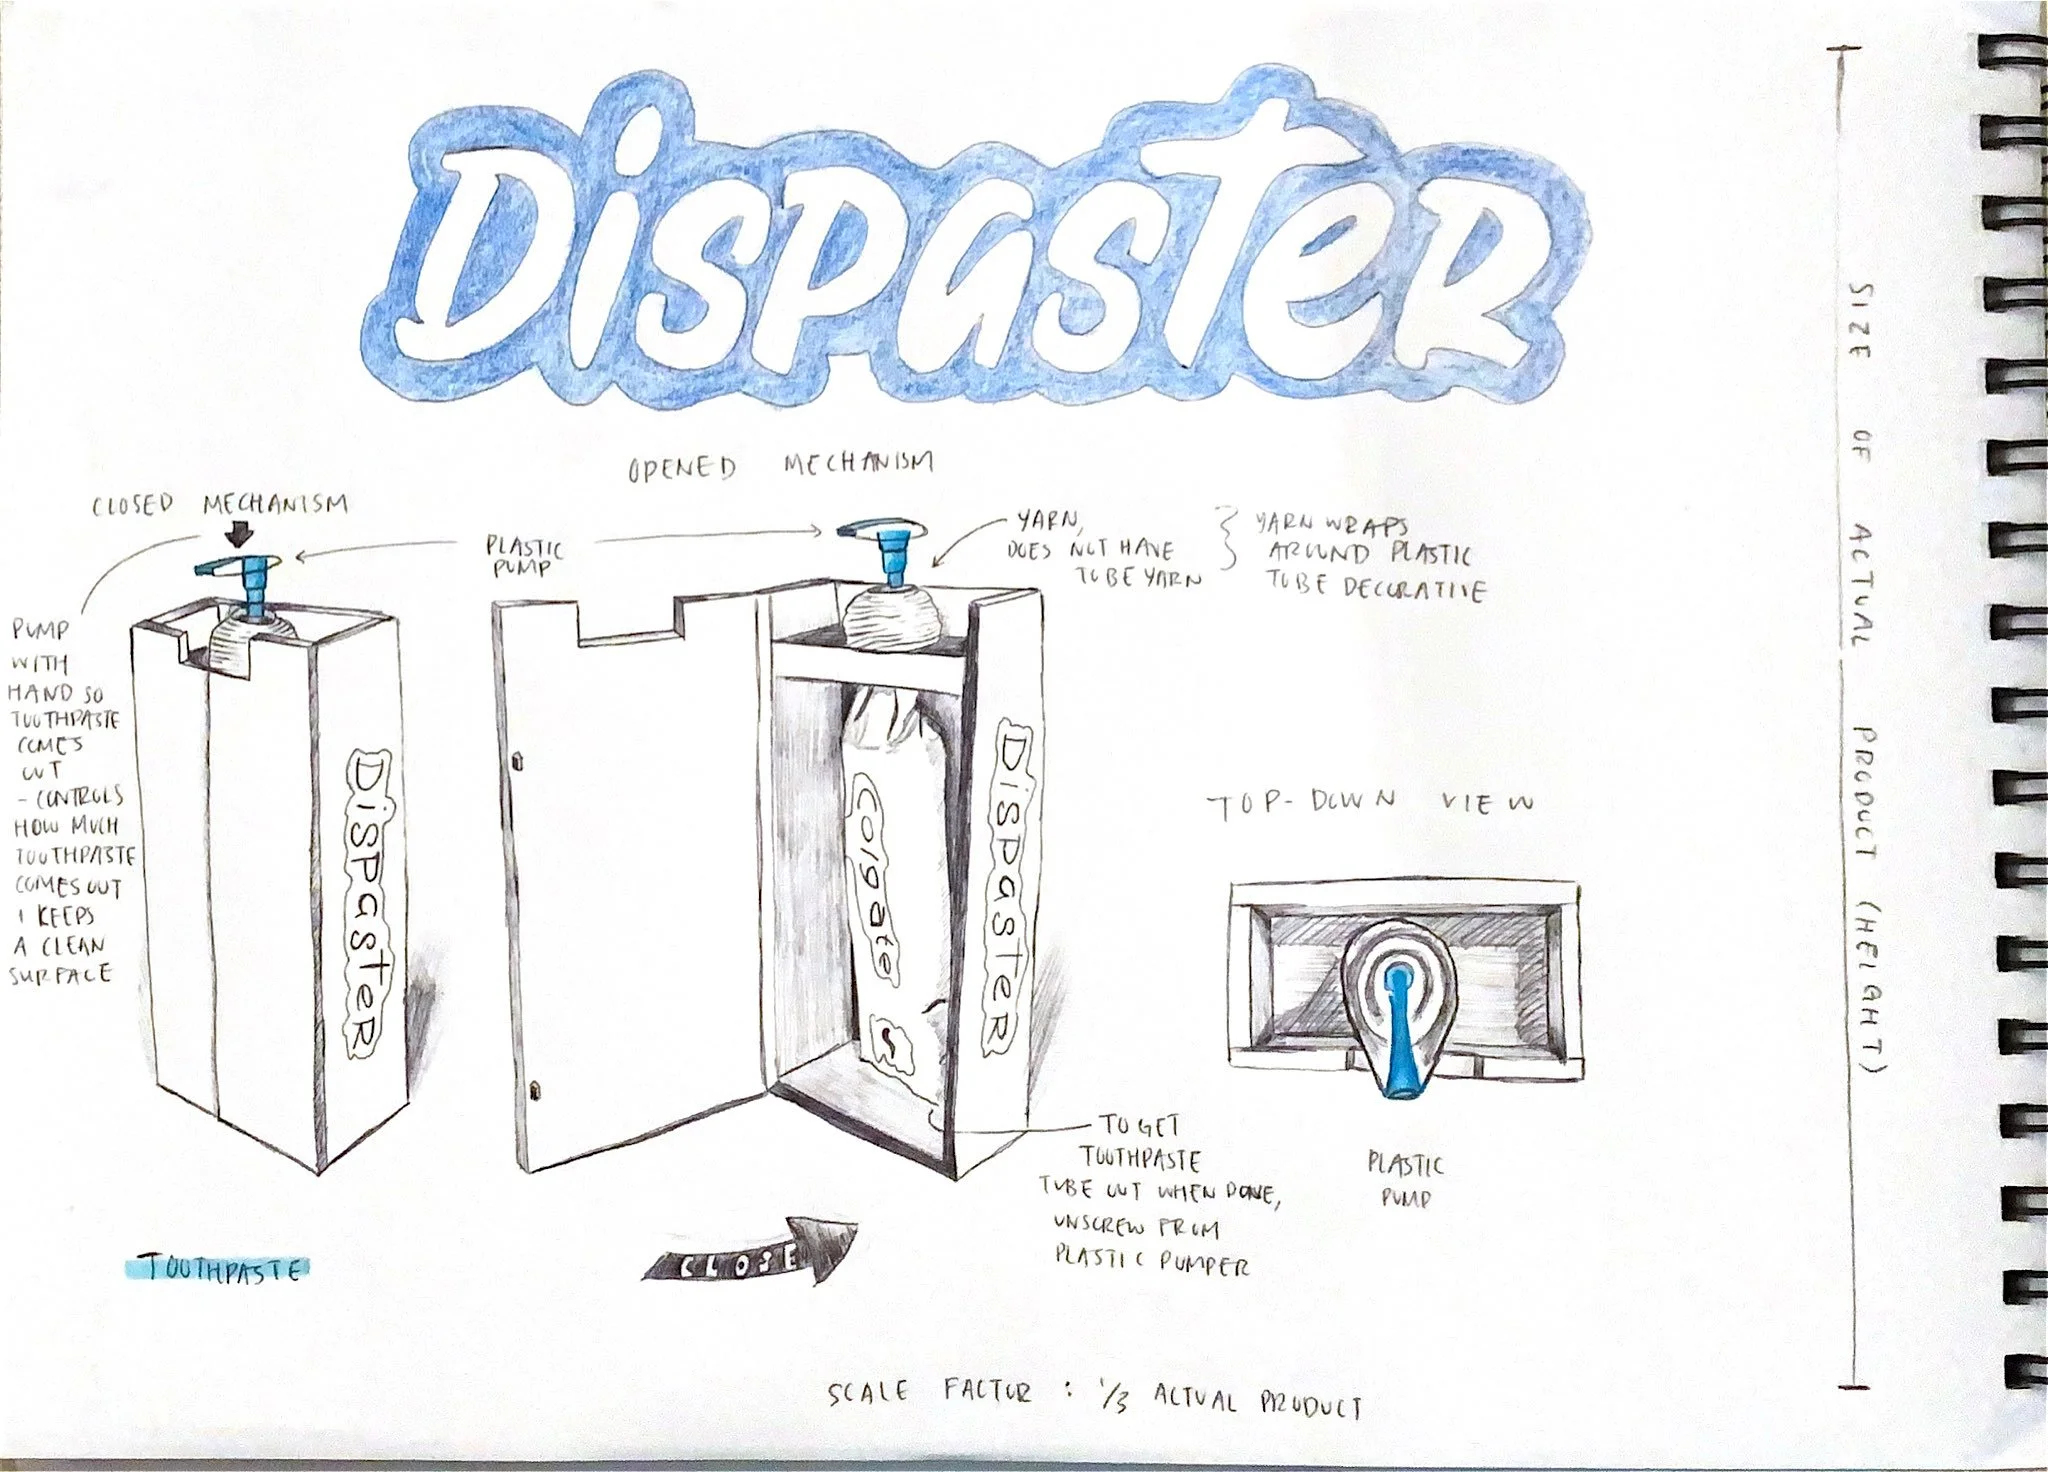 DispasteR
OPENED MECHANISM
CLOSED MECHANISM
PLASTIC
PUMP
YARN,
DOES NOT HAVE
TO BE YARN
YARN WRAPS
AROUND PLASTIC
TUBE DECORATIVE
PUMP
WITH
HAND SO
TOOTHPASTE
COMES
OUT
- CONTROLS
HOW MUCH
TOOTHPASTE
COMES OUT
& KEEPS
A CLEAN
SURFACE
DispasteR
Colgate
DispasteR
TOP-DOWN VIEW
PLASTIC
PUMP
TO GET
TOOTHPASTE
TUBE OUT WHEN DONE,
UNSCREW FROM
PLASTIC PUMPER
TOOTHPASTE
CLOSE
SCALE FACTOR : 1/3 ACTUAL PRODUCT
SIZE OF ACTUAL PRODUCT (HEIGHT)